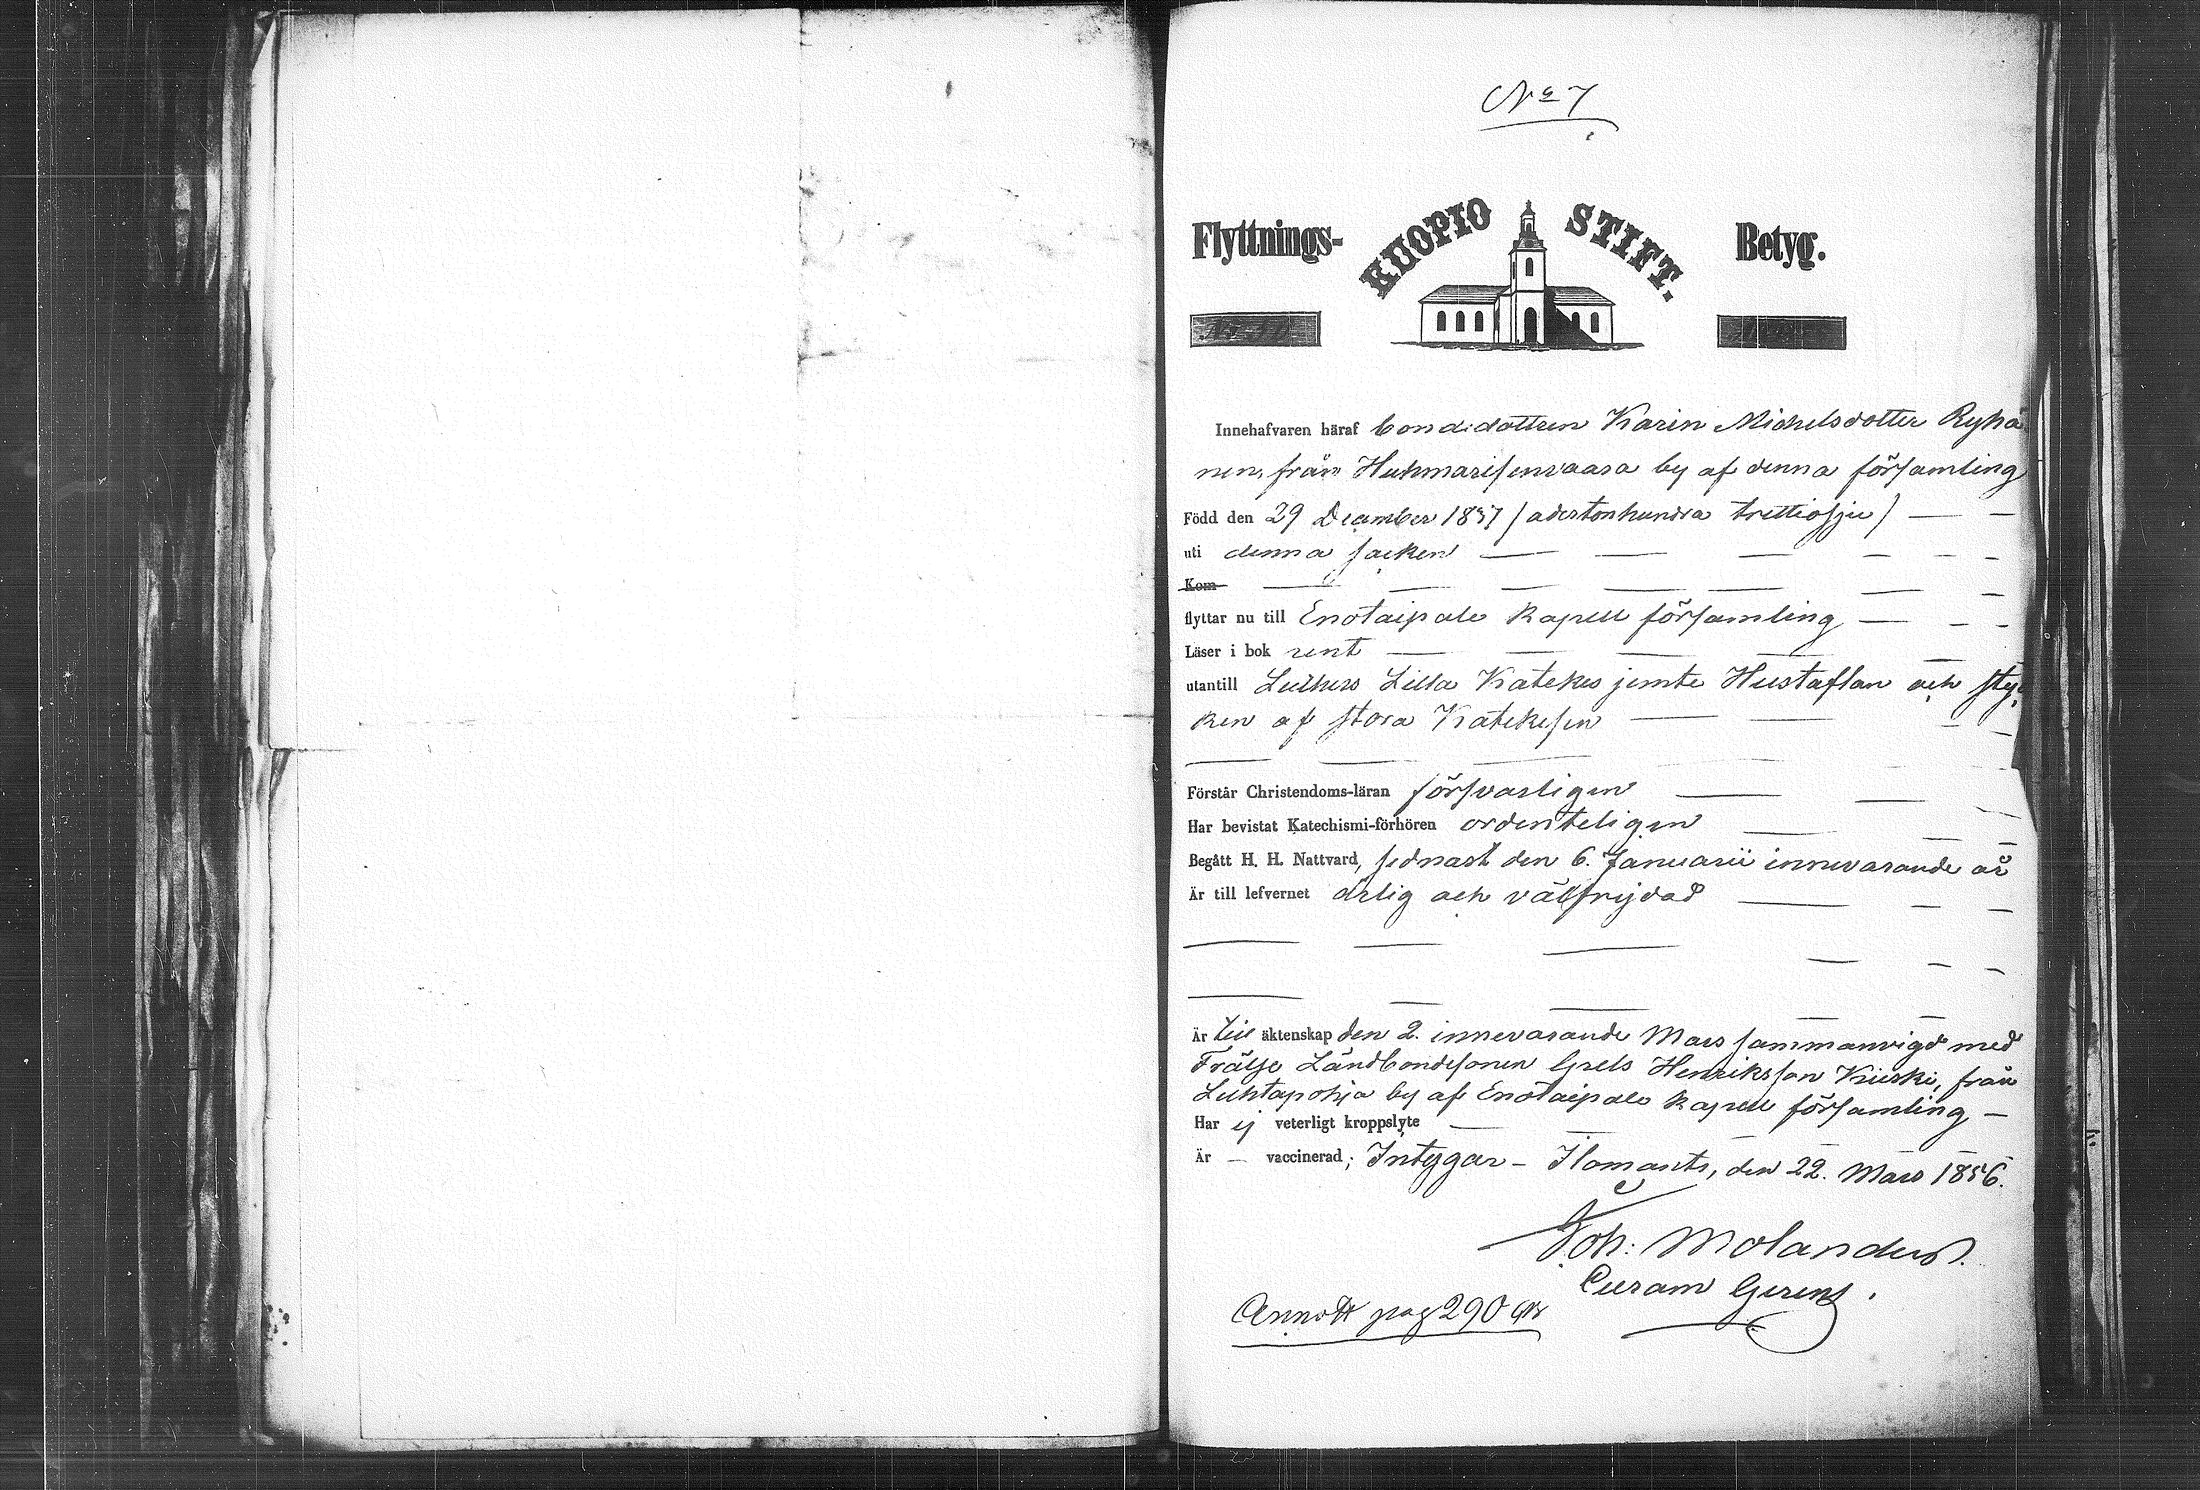 No 7
Flyttnings- KUOPIO STIFT. Betyg.
Innehafvaren häraf bondedottren Karin Michelsdotter Ryhä
nen, från Huhmarisenvaara by af denna församling
Född den 29 December 1837 / adertonhundra trettiosju /
uti denna socken
Kom
flyttar nu till Enotaipale Kapell församling
Läser i bok rent
utantill Luthers Lilla Katekes jemte Hustaflan och styc
ken af stora Katekesen
Förstår Christendoms-läran försvarligen
Har bevistat Katechismi-förhören ordenteligen
Begått H. H. Nattvard, sednast den 6. Januarii innevarande år
Är till lefvernet ärlig och välfrejdad
Är till äktenskap den 2. innevarande Mars sammanvigd med
Frälse Landbondesonen Grels Henriksson Kuski, från
Luhtapohja by af Enotaipale kapell församling
Har ej veterligt kroppslyte
Är — vaccinerad; Intygar – Ilomants, den 22. Mars 1856.
Joh: Molander.
Curam Gerens.
Annott pag 290